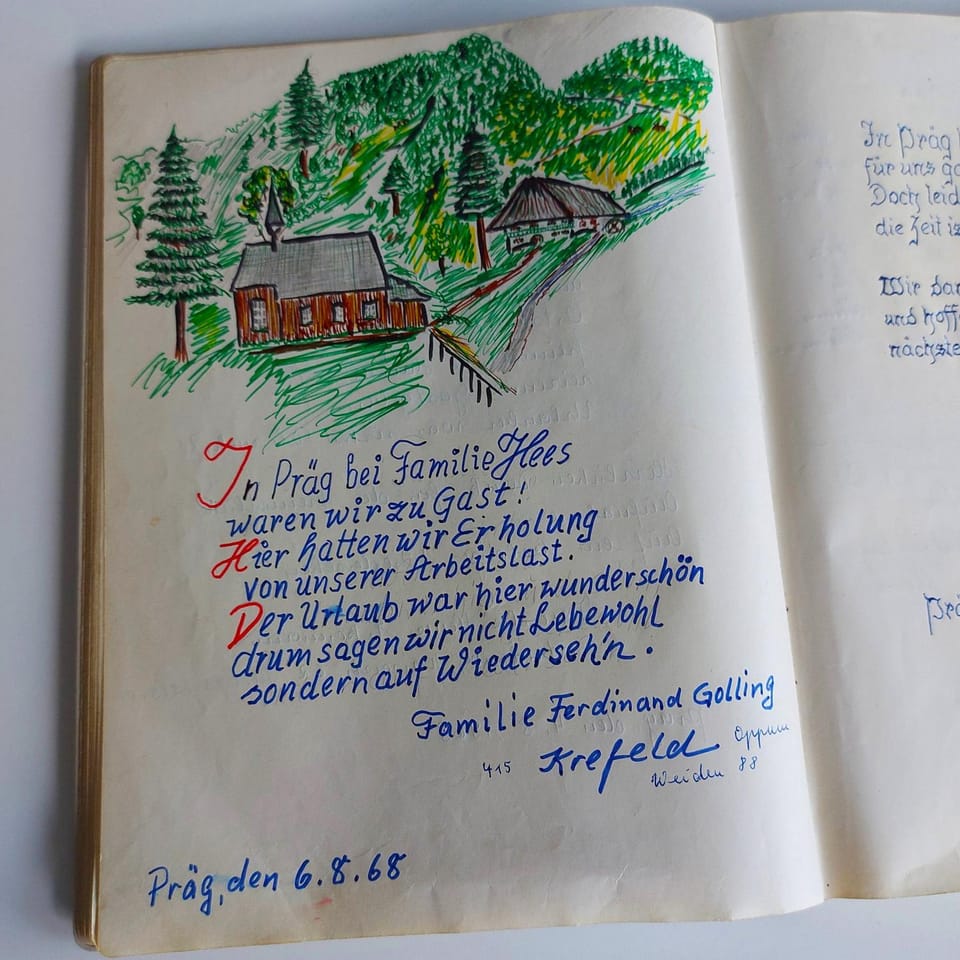 In Präg bei Familie Hees
waren wir zu Gast!
Hier hatten wir Erholung
von unserer Arbeitslast.
Der Urlaub war hier wunderschön
drum sagen wir nicht Lebewohl
sondern auf Wiederseh'n.
Familie Ferdinand Golling
415 Krefeld Oppum
Weiden 88
Präg, den 6.8.68
In Präg
für uns
Doch leid
die Zeit
Wir
und hoff
nächste
Prä